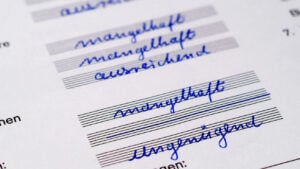 ausreichend
mangelhaft
mangelhaft
ausreichend
mangelhaft
ungenügend
7.